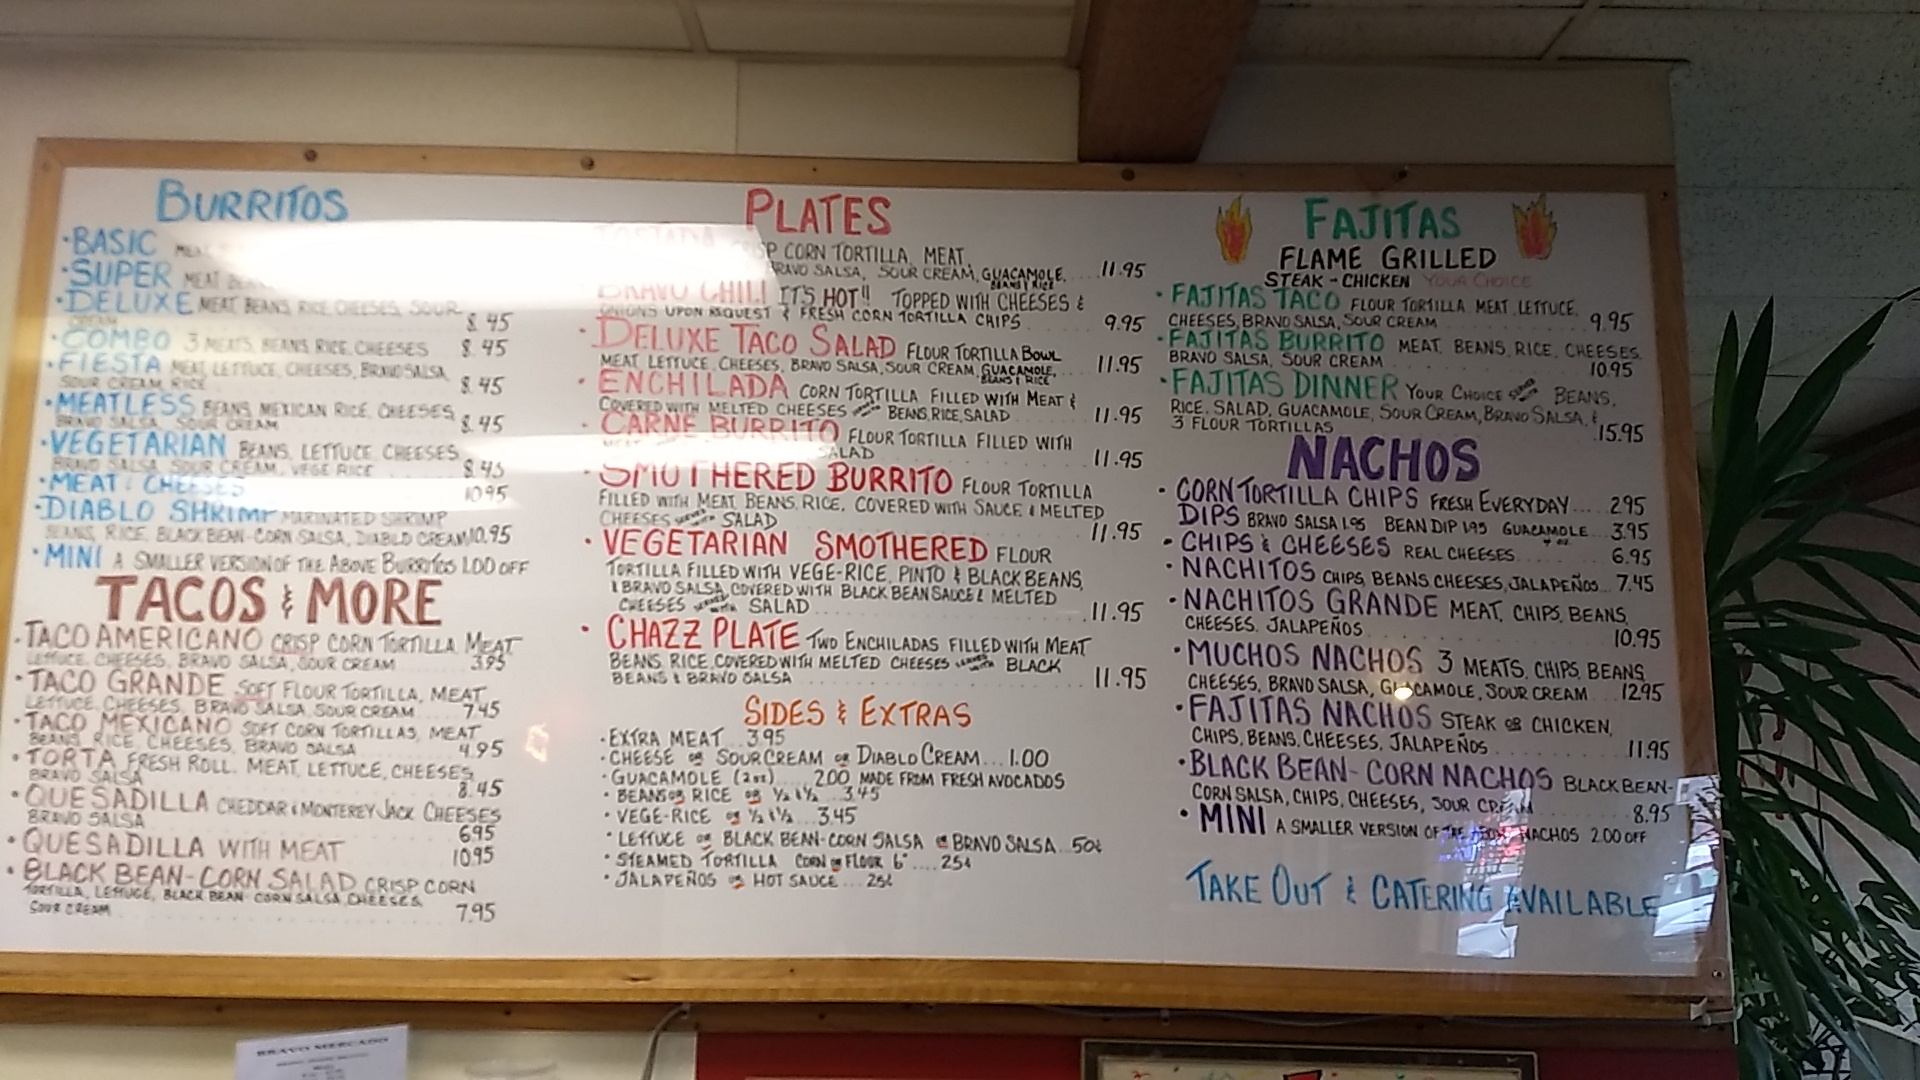 BURRITOS
·BASIC
·SUPER MEAT
·DELUXE MEAT BEANS, RICE, CHEESES, SOUR
CREAM 8.45
·COMBO 3 MEATS, BEANS, RICE, CHEESES 8.45
·FIESTA MEAT, LETTUCE, CHEESES, BRAVO SALSA,
SOUR CREAM, RICE 8.45
·MEATLESS BEANS, MEXICAN RICE, CHEESES,
BRAVO SALSA, SOUR CREAM 8.45
·VEGETARIAN BEANS, LETTUCE, CHEESES
BRAVO SALSA, SOUR CREAM, VEGE RICE 8.45
·MEAT & CHEESES 10.95
·DIABLO SHRIMP MARINATED SHRIMP
BEANS, RICE, BLACK BEAN-CORN SALSA, DIABLO CREAM 10.95
·MINI A SMALLER VERSION OF THE ABOVE BURRITOS 1.00 OFF
TACOS & MORE
·TACO AMERICANO CRISP CORN TORTILLA, MEAT
LETTUCE, CHEESES, BRAVO SALSA, SOUR CREAM 3.95
·TACO GRANDE SOFT FLOUR TORTILLA, MEAT
LETTUCE, CHEESES, BRAVO SALSA, SOUR CREAM 7.45
·TACO MEXICANO SOFT CORN TORTILLAS, MEAT
BEANS, RICE, CHEESES, BRAVO SALSA 4.95
·TORTA FRESH ROLL, MEAT, LETTUCE, CHEESES,
BRAVO SALSA 8.45
·QUESADILLA CHEDDAR & MONTEREY JACK CHEESES
BRAVO SALSA 6.95
·QUESADILLA WITH MEAT 10.95
·BLACK BEAN-CORN SALAD CRISP CORN
TORTILLA, LETTUCE, BLACK BEAN-CORN SALSA, CHEESES,
SOUR CREAM 7.95
PLATES
TOSTADA CRISP CORN TORTILLA, MEAT,
BRAVO SALSA, SOUR CREAM, GUACAMOLE, BEANS & RICE 11.95
BRAVO CHILI IT'S HOT!! TOPPED WITH CHEESES &
ONIONS UPON REQUEST & FRESH CORN TORTILLA CHIPS 9.95
·DELUXE TACO SALAD FLOUR TORTILLA BOWL
MEAT, LETTUCE, CHEESES, BRAVO SALSA, SOUR CREAM, GUACAMOLE, BEANS & RICE 11.95
·ENCHILADA CORN TORTILLA FILLED WITH MEAT &
COVERED WITH MELTED CHEESES SERVED WITH BEANS, RICE, SALAD 11.95
·CARNE BURRITO FLOUR TORTILLA FILLED WITH
MEAT SALAD 11.95
·SMOTHERED BURRITO FLOUR TORTILLA
FILLED WITH MEAT, BEANS, RICE, COVERED WITH SAUCE & MELTED
CHEESES SERVED WITH SALAD 11.95
·VEGETARIAN SMOTHERED FLOUR
TORTILLA FILLED WITH VEGE-RICE, PINTO & BLACK BEANS,
& BRAVO SALSA, COVERED WITH BLACK BEAN SAUCE & MELTED
CHEESES SERVED WITH SALAD 11.95
·CHAZZ PLATE TWO ENCHILADAS FILLED WITH MEAT
BEANS, RICE, COVERED WITH MELTED CHEESES SERVED WITH BLACK
BEANS & BRAVO SALSA 11.95
SIDES & EXTRAS
·EXTRA MEAT...3.95
·CHEESE OR SOUR CREAM OR DIABLO CREAM...1.00
·GUACAMOLE (2oz)....2.00 MADE FROM FRESH AVOCADOS
·BEANS OR RICE OR ½ & ½...3.45
·VEGE-RICE OR ½ & ½...3.45
·LETTUCE OR BLACK BEAN-CORN SALSA OR BRAVO SALSA..50¢
·STEAMED TORTILLA CORN OR FLOUR 6"....25¢
·JALAPEÑOS OR HOT SAUCE...25¢
FAJITAS
FLAME GRILLED
STEAK-CHICKEN YOUR CHOICE
·FAJITAS TACO FLOUR TORTILLA, MEAT, LETTUCE,
CHEESES, BRAVO SALSA, SOUR CREAM 9.95
·FAJITAS BURRITO MEAT, BEANS, RICE, CHEESES,
BRAVO SALSA, SOUR CREAM 10.95
·FAJITAS DINNER YOUR CHOICE SERVED WITH BEANS,
RICE, SALAD, GUACAMOLE, SOUR CREAM, BRAVO SALSA, &
3 FLOUR TORTILLAS 15.95
NACHOS
·CORN TORTILLA CHIPS FRESH EVERYDAY..... 2.95
DIPS BRAVO SALSA 1.95 BEAN DIP 1.95 GUACAMOLE 4 oz. 3.95
·CHIPS & CHEESES REAL CHEESES 6.95
·NACHITOS CHIPS, BEANS, CHEESES, JALAPEÑOS...7.45
·NACHITOS GRANDE MEAT, CHIPS, BEANS,
CHEESES, JALAPEÑOS 10.95
·MUCHOS NACHOS 3 MEATS, CHIPS, BEANS
CHEESES, BRAVO SALSA, GUACAMOLE, SOUR CREAM 12.95
·FAJITAS NACHOS STEAK OR CHICKEN,
CHIPS, BEANS, CHEESES, JALAPEÑOS 11.95
·BLACK BEAN-CORN NACHOS BLACK BEAN-
CORN SALSA, CHIPS, CHEESES, SOUR CREAM 8.95
·MINI A SMALLER VERSION OF THE ABOVE NACHOS 2.00 OFF
TAKE OUT & CATERING AVAILABLE
BRAVO MERCADO